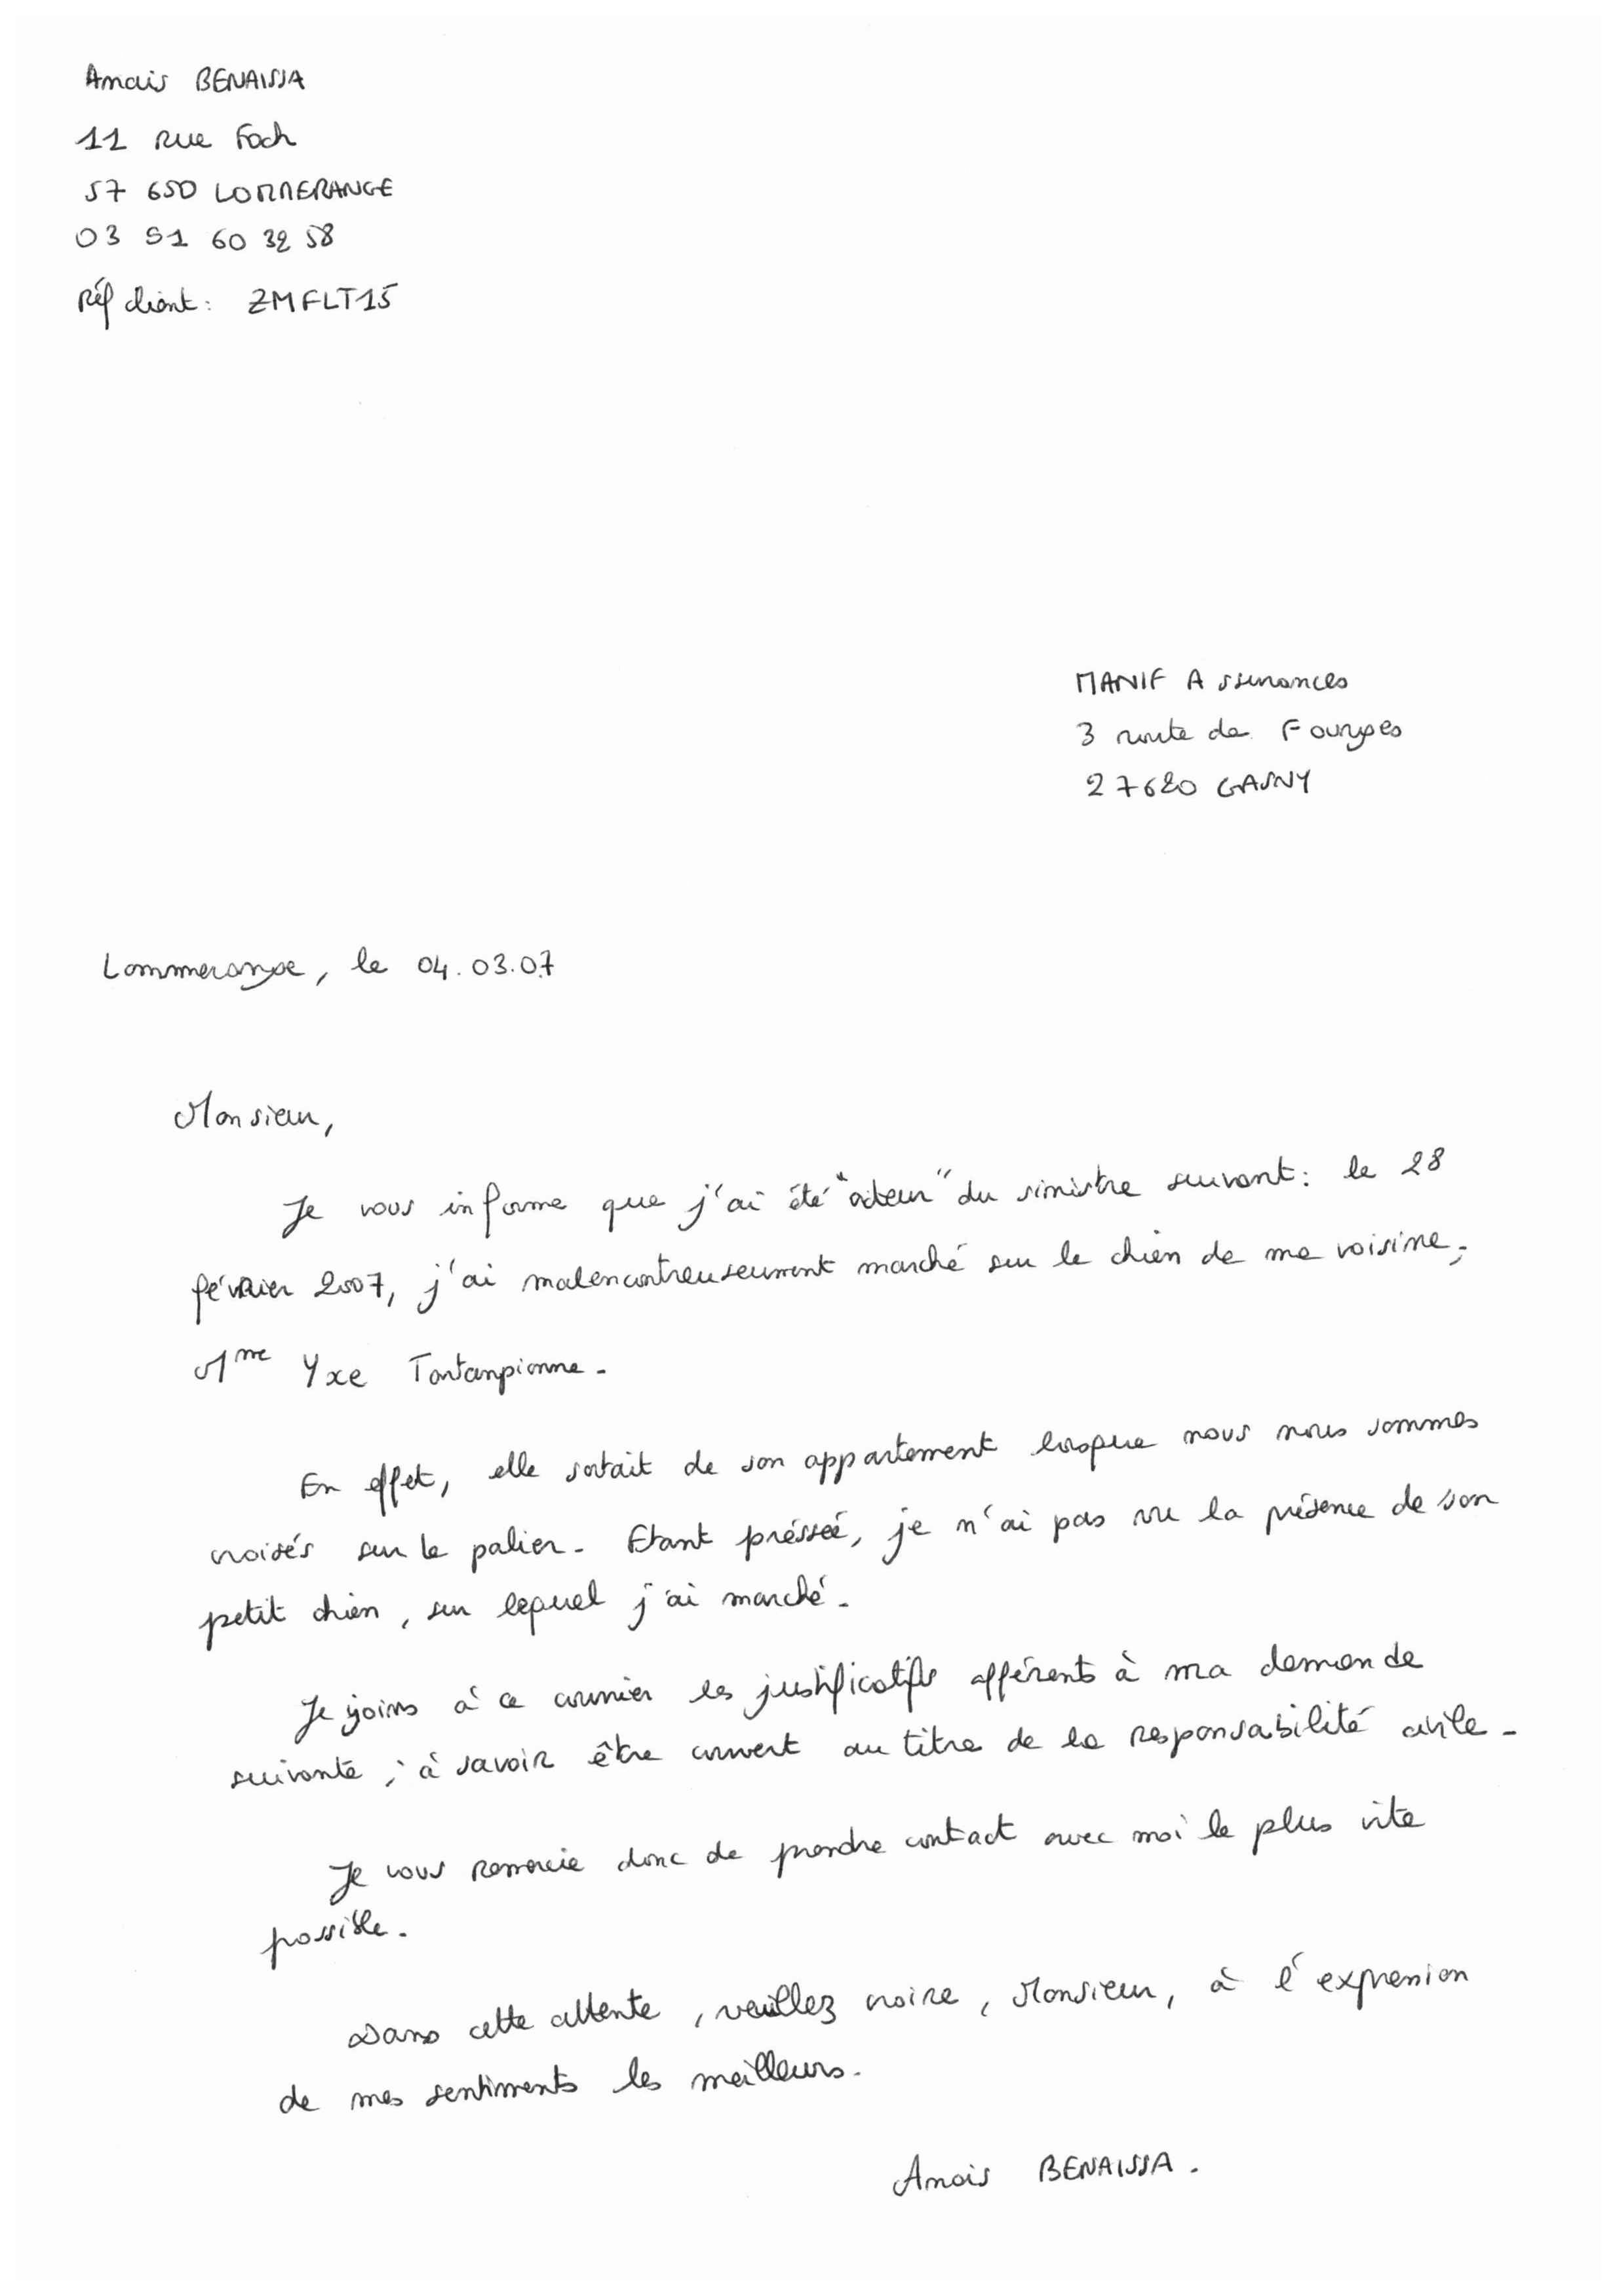 Anais BENAISSA
11 rue Foch
57 650 LOMMERANGE
03 51 60 32 58
Réf client : ZMFLT15
MANIF Assurances
3 route de Fourges
27620 GASNY
Lommerange, le 04.03.07
Monsieur,
Je vous informe que j'ai été "acteur" du sinistre suivant : le 28
février 2007, j'ai malencontreusement marché sur le chien de ma voisine,
Mme Yxe Tartanpionne.
En effet, elle sortait de son appartement lorsque nous nous sommes
croisés sur le palier. Etant préssée, je n'ai pas vu la présence de son
petit chien, sur lequel j'ai marché.
Je joins à ce courrier les justificatifs afférents à ma demande
suivante ; à savoir être couvert au titre de la responsabilité civile.
Je vous remercie donc de prendre contact avec moi le plus vite
possible.
Dans cette attente, veuillez croire, Monsieur, à l'expression
de mes sentiments les meilleurs.
Anais BENAISSA.